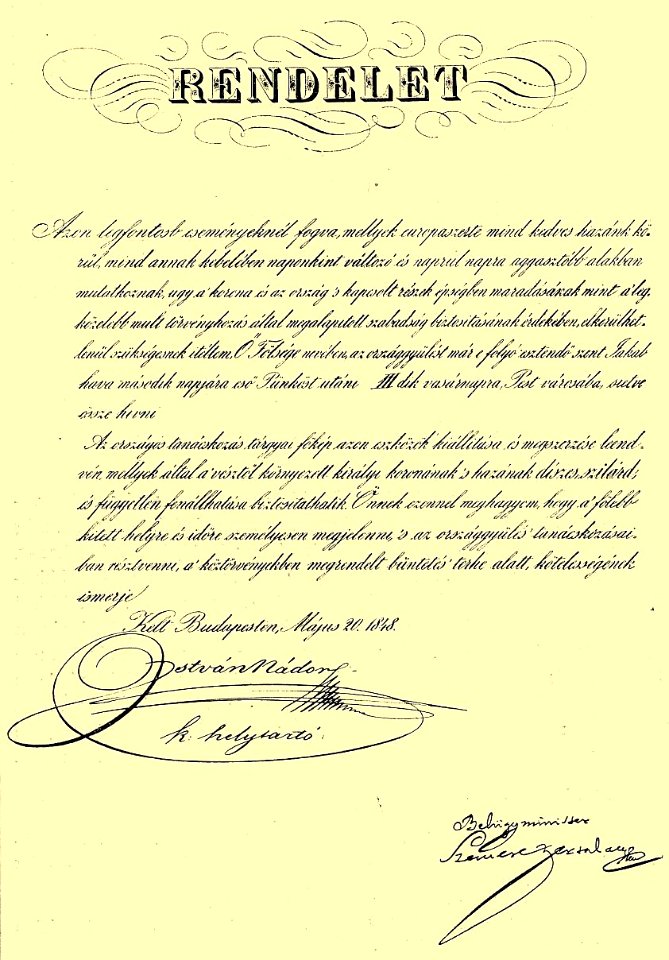 RENDELET
Azon legfontosb eseményeknél fogva, mellyek europaszerte mind kedves hazánk kö-
rül, mind annak kebelében naponkint változó és naprul napra aggasztóbb alakban
mutatkoznak, ugy a' korona és az ország 's kapcsolt részek épségben maradásának mint a' leg-
közelebb mult törvényhozás által megalapitott szabadság biztositásának érdekében, elkerülhet-
lenül szükségesnek itéltem, Ő Fölsége nevében, az országgyülést már e folyó esztendő szent Jakab
hava második napjára eső Pünköst utáni III dik vasárnapra, Pest városába,
össze hivni
Az országos tanácskozás tárgyai főkép azon eszközök kiállitása és megszerzése leend-
vén, mellyek által a' vésztől környezett királyi koronának 's hazának diszes, szilárd,
és független fenállhatása biztosittathatik. Önnek ezennel meghagyom, hogy a' fölebb
kitett helyre és időre személyesen megjelenni, 's az országgyülés tanácskozásai-
ban résztvenni, a' köztörvényekben megrendelt büntetés terhe alatt, kötelességének
ismerje
Kelt Budapesten, Május 20. 1848.
István Nádor
k. helytartó
Belügyminister
Szemere Bertalan